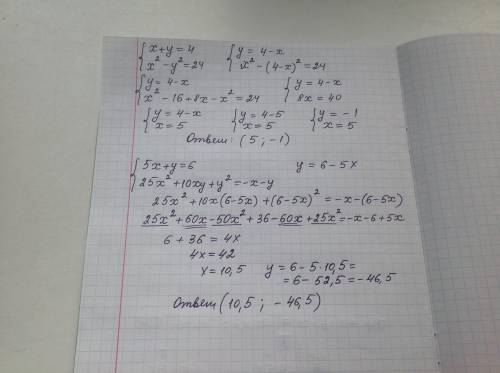 {x+y=4 {y=4-x
{x²-y²=24 {x²-(4-x)²=24
{y=4-x {y=4-x
{x²-16+8x-x²=24 {8x=40
{y=4-x {y=4-5 {y=-1
{x=5 {x=5 {x=5
Ответ: (5; -1)
{5x+y=6 y=6-5x
{25x²+10xy+y²=-x-y
25x²+10x(6-5x)+(6-5x)²=-x-(6-5x)
25x²+60x-50x²+36-60x+25x²=-x-6+5x
6+36=4x
4x=42
x=10,5 y=6-5·10,5=
=6-52,5=-46,5
Ответ (10,5; -46,5)